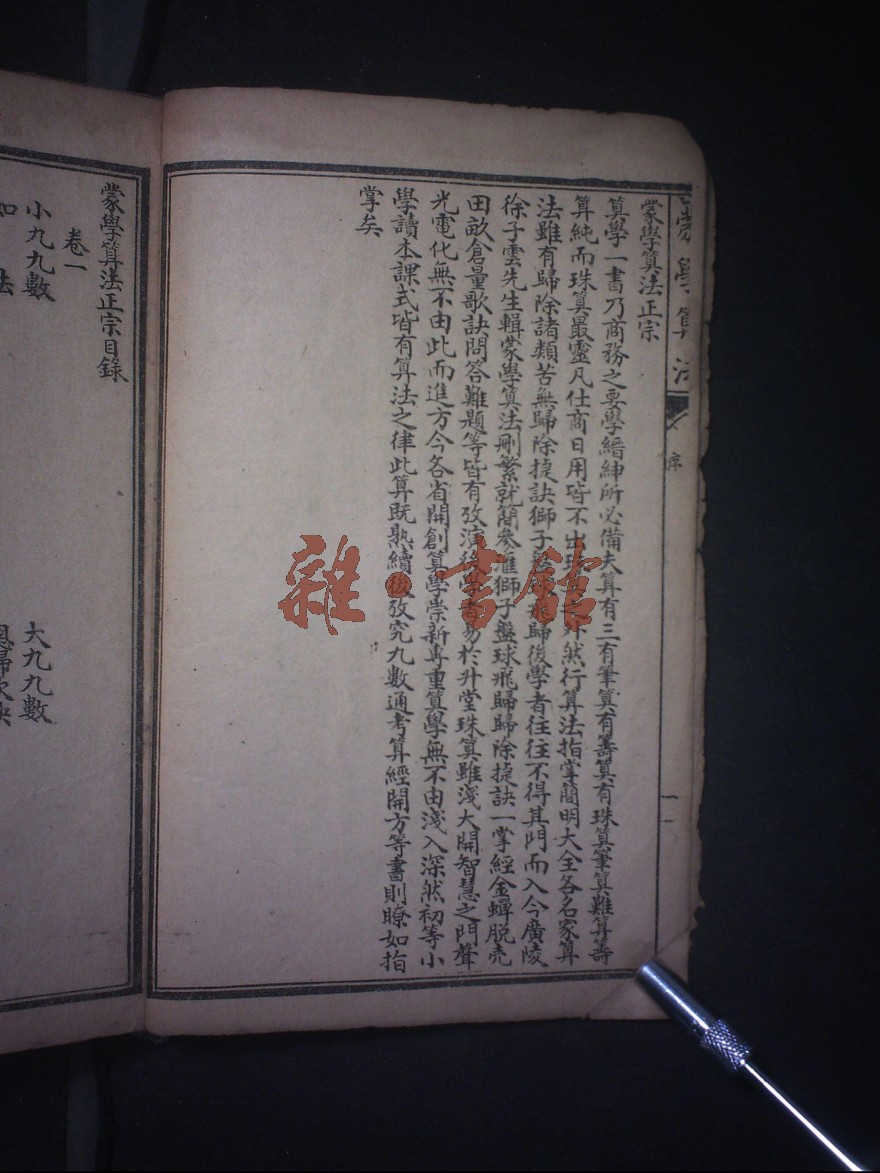 蒙學算法
序
一
蒙學算法正宗
算學一書乃商務之要學縉紳所必備夫算有三有筆算有籌算有珠算筆算難算籌
算純而珠算最靈凡仕商日用皆不出珠算之外然行算法指掌簡明大全各名家算
法雖有歸除諸類苦無歸除捷訣獅子盤球飛歸後學者往往不得其門而入今廣陵
徐子雲先生輯蒙學算法刪繁就簡參准獅子盤球飛歸歸除捷訣一掌經金蟬脫壳
田畝倉量歌訣問答難題等皆有攷演後學者易於升堂珠算雖淺大開智慧之門聲
光電化無不由此而進方今各省開創算學崇新專重算學無不由淺入深然初等小
學讀本課式皆有算法之律此算既熟續後攷究九數通考算經開方等書則瞭如指
掌矣
蒙學算法正宗目錄
卷一
小九九數
大九九數
雜·書館